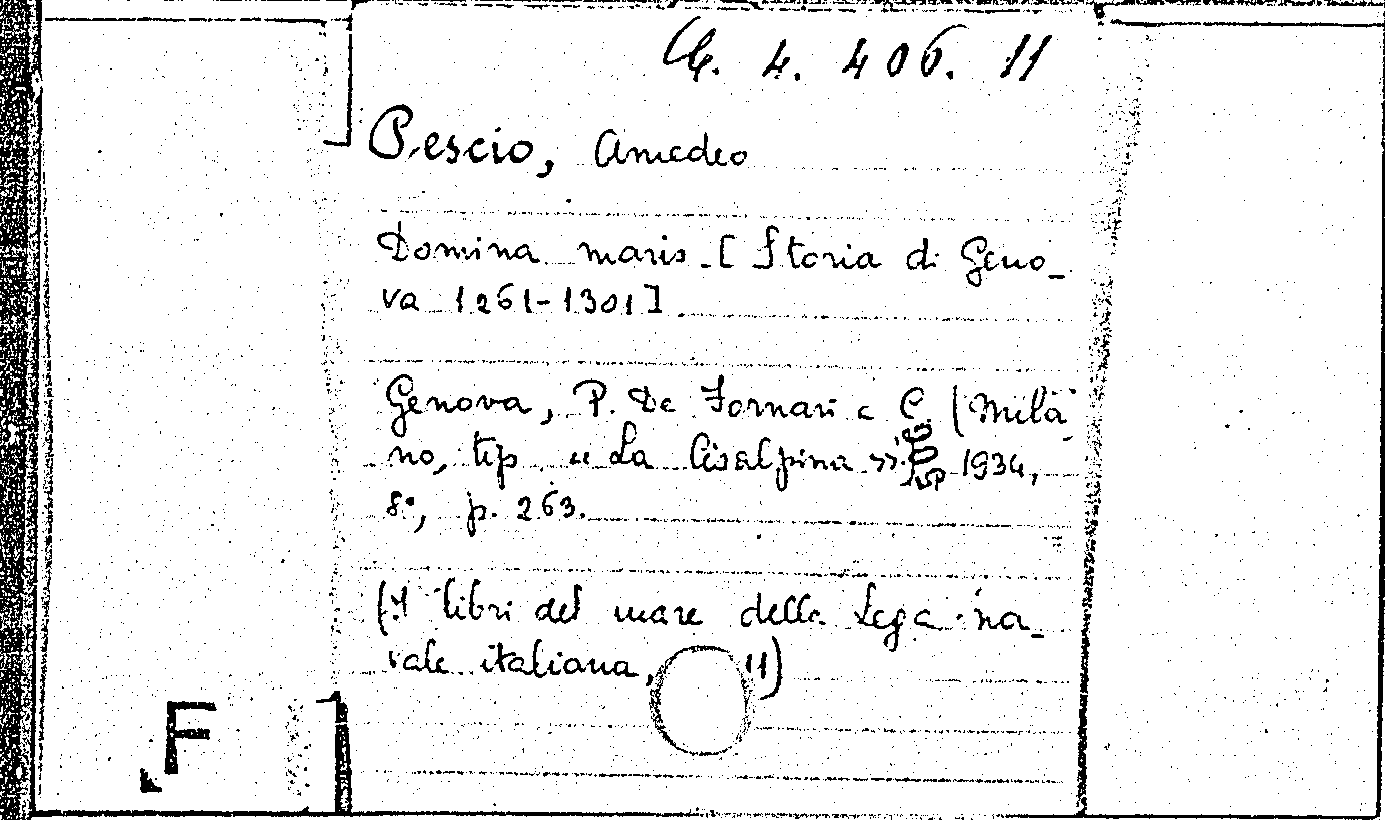 4. 406. 11
Pescio, Amedeo
Domina maris. [Storia di Geno-
va 1261-1301]
Genova, P. De Fornari e C. (Mila-
no, tip. « La Cisalpina »). 1934,
8°, p. 263.
(I libri del mare della Lega na-
vale italiana, 11)
F